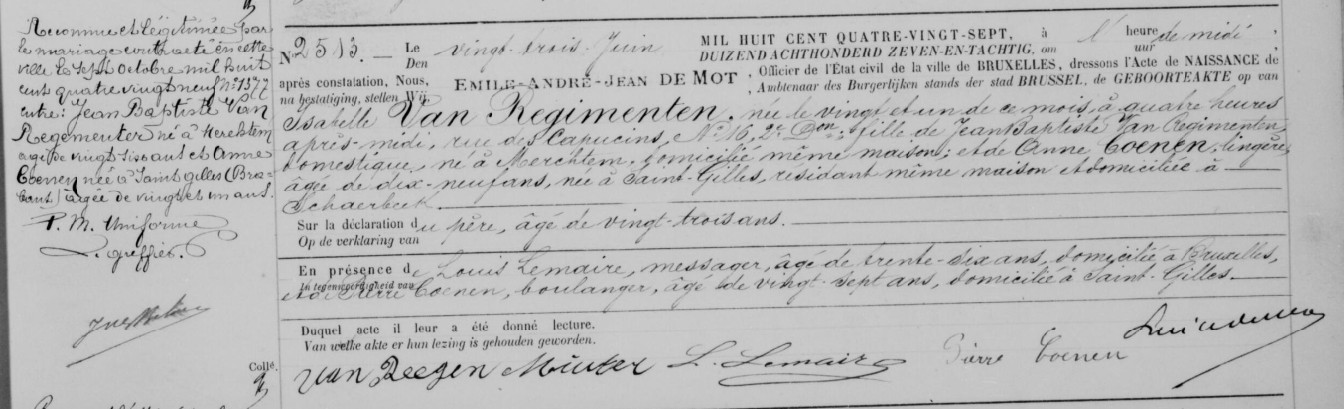 Reconnue et légitimée par
le mariage contracté en cette
ville le sept octobre mil huit
cent quatre vingt neuf n° 1577
entre: Jean Baptiste Van
Regementer né à Merchtem
agé de vingt six ans et Anne
Coenen née à Saint Gilles (Bra-
bant) agée de vingt et un ans.
P. M. Uniforme
L. greffier.
Collé.
N° 2513. — Le vingt-trois Juin MIL HUIT CENT QUATRE-VINGT-SEPT, à l' heure de midi,
Den DUIZENDACHTHONDERD ZEVEN-EN-TACHTIG, om uur
après constatation, Nous, EMILE-ANDRÉ-JEAN DE MOT, Officier de l'État civil de la ville de BRUXELLES, dressons l'Acte de NAISSANCE de
na bestatiging, stellen Wij, Ambtenaar des Burgerlijken stands der stad BRUSSEL, de GEBOORTEAKTE op van
Isabelle Van Regimenten, née le vingt et un de ce mois, à quatre heures
après-midi, rue des Capucins, N° 16, 2e Don; fille de Jean Baptiste Van Regimenten,
domestique, né à Merchtem, domicilié même maison; et de Anne Coenen, lingère,
âgée de dix-neuf ans, née à Saint-Gilles, résidant même maison et domiciliée à
Schaerbeek
Sur la déclaration du père, âgé de vingt-trois ans.
Op de verklaring van
En présence de Louis Lemaire, messager, âgé de trente-six ans, domicilié à Bruxelles,
In tegenwoordigheid van
et de Pierre Coenen, boulanger, âgé de vingt-sept ans, domicilié à Saint-Gilles.
Duquel acte il leur a été donné lecture.
Van welke akte er hun lezing is gehouden geworden.
Van Reegen L. Lemaire Pierre Coenen